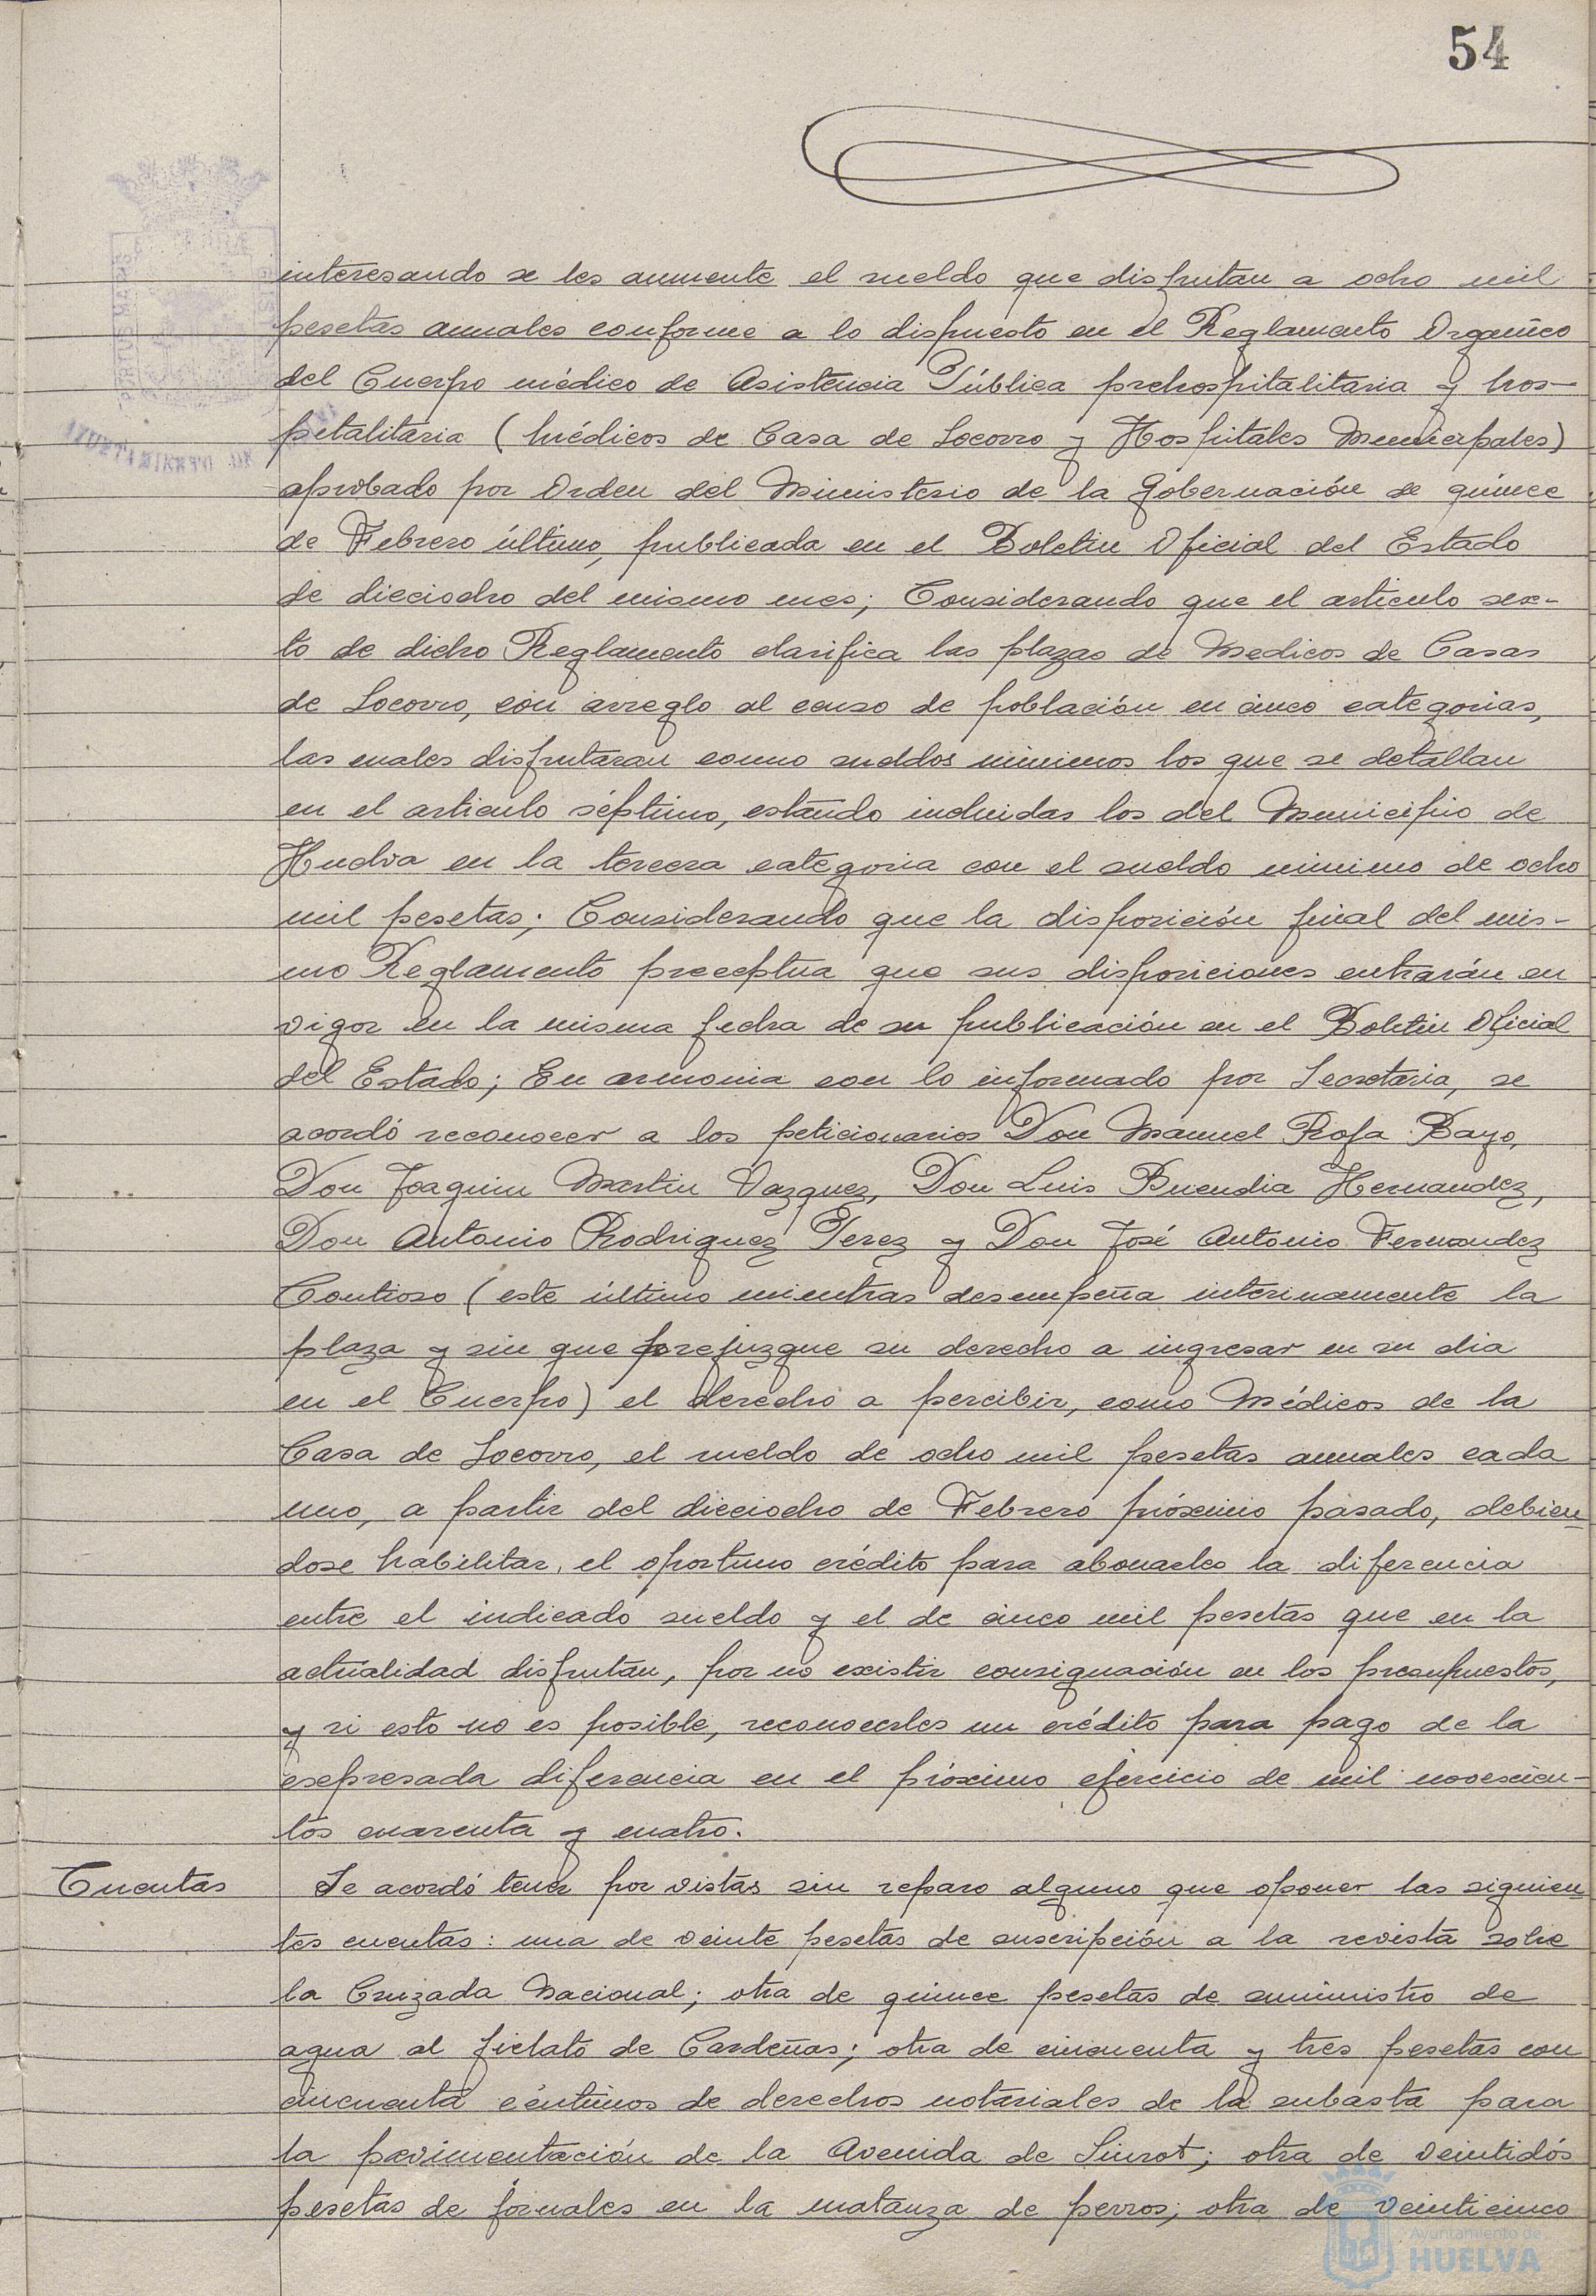 54
interesando se les aumente el sueldo que disfrutan a ocho mil
pesetas anuales conforme a lo dispuesto en el Reglamento Organico
del Cuerpo médico de Asistencia Pública prehospitalitaria y hos-
pitalitaria (Médicos de Casa de Socorro y Hospitales Municipales)
aprobado por Orden del Ministerio de la Gobernación de quince
de Febrero último, publicada en el Boletin Oficial del Estado
de dieciocho del mismo mes; Considerando que el articulo sex-
to de dicho Reglamento clasifica las plazas de Medicos de Casas
de Socorro, con arreglo al censo de población en cinco categorias,
las cuales disfrutaran como sueldos minimos los que se detallan
en el articulo séptimo, estando incluidas los del Municipio de
Huelva en la tercera categoria con el sueldo minimo de ocho
mil pesetas; Considerando que la disposición final del mis-
mo Reglamento preceptua que sus disposiciones entrarán en
vigor en la misma fecha de su publicación en el Boletin Oficial
del Estado; En armonia con lo informado por Secretaria, se
acordó reconocer a los peticionarios Don Manuel Rofa Bayo,
Don Joaquin Martin Vazquez, Don Luis Buendia Hernandez,
Don Antonio Rodriguez Perez y Don José Antonio Fernandez
Contioso (este último mientras desempeña interinamente la
plaza y sin que prejuzgue su derecho a ingresar en su dia
en el Cuerpo) el derecho a percibir, como Médicos de la
Casa de Socorro, el sueldo de ocho mil pesetas anuales cada
uno, a partir del dieciocho de Febrero próximo pasado, debien-
dose habilitar, el oportuno crédito para abonarles la diferencia
entre el indicado sueldo y el de cinco mil pesetas que en la
actualidad disfrutan, por no existir consignación en los presupuestos,
y si esto no es posible, reconocerles un crédito para pago de la
expresada diferencia en el próximo ejercicio de mil novecien-
tos cuarenta y cuatro.
Cuentas
Se acordó tener por vistas sin reparo alguno que oponer las siguien-
tes cuentas: una de veinte pesetas de suscripción a la revista sobre
la Cruzada Nacional; otra de quince pesetas de suministro de
agua al fielato de Cardeñas; otra de cincuenta y tres pesetas con
cincuenta céntimos de derechos notariales de la subasta para
la pavimentación de la Avenida de Siurot; otra de veintidós
pesetas de jornales en la matanza de perros; otra de veinticinco
Ayuntamiento de
HUELVA